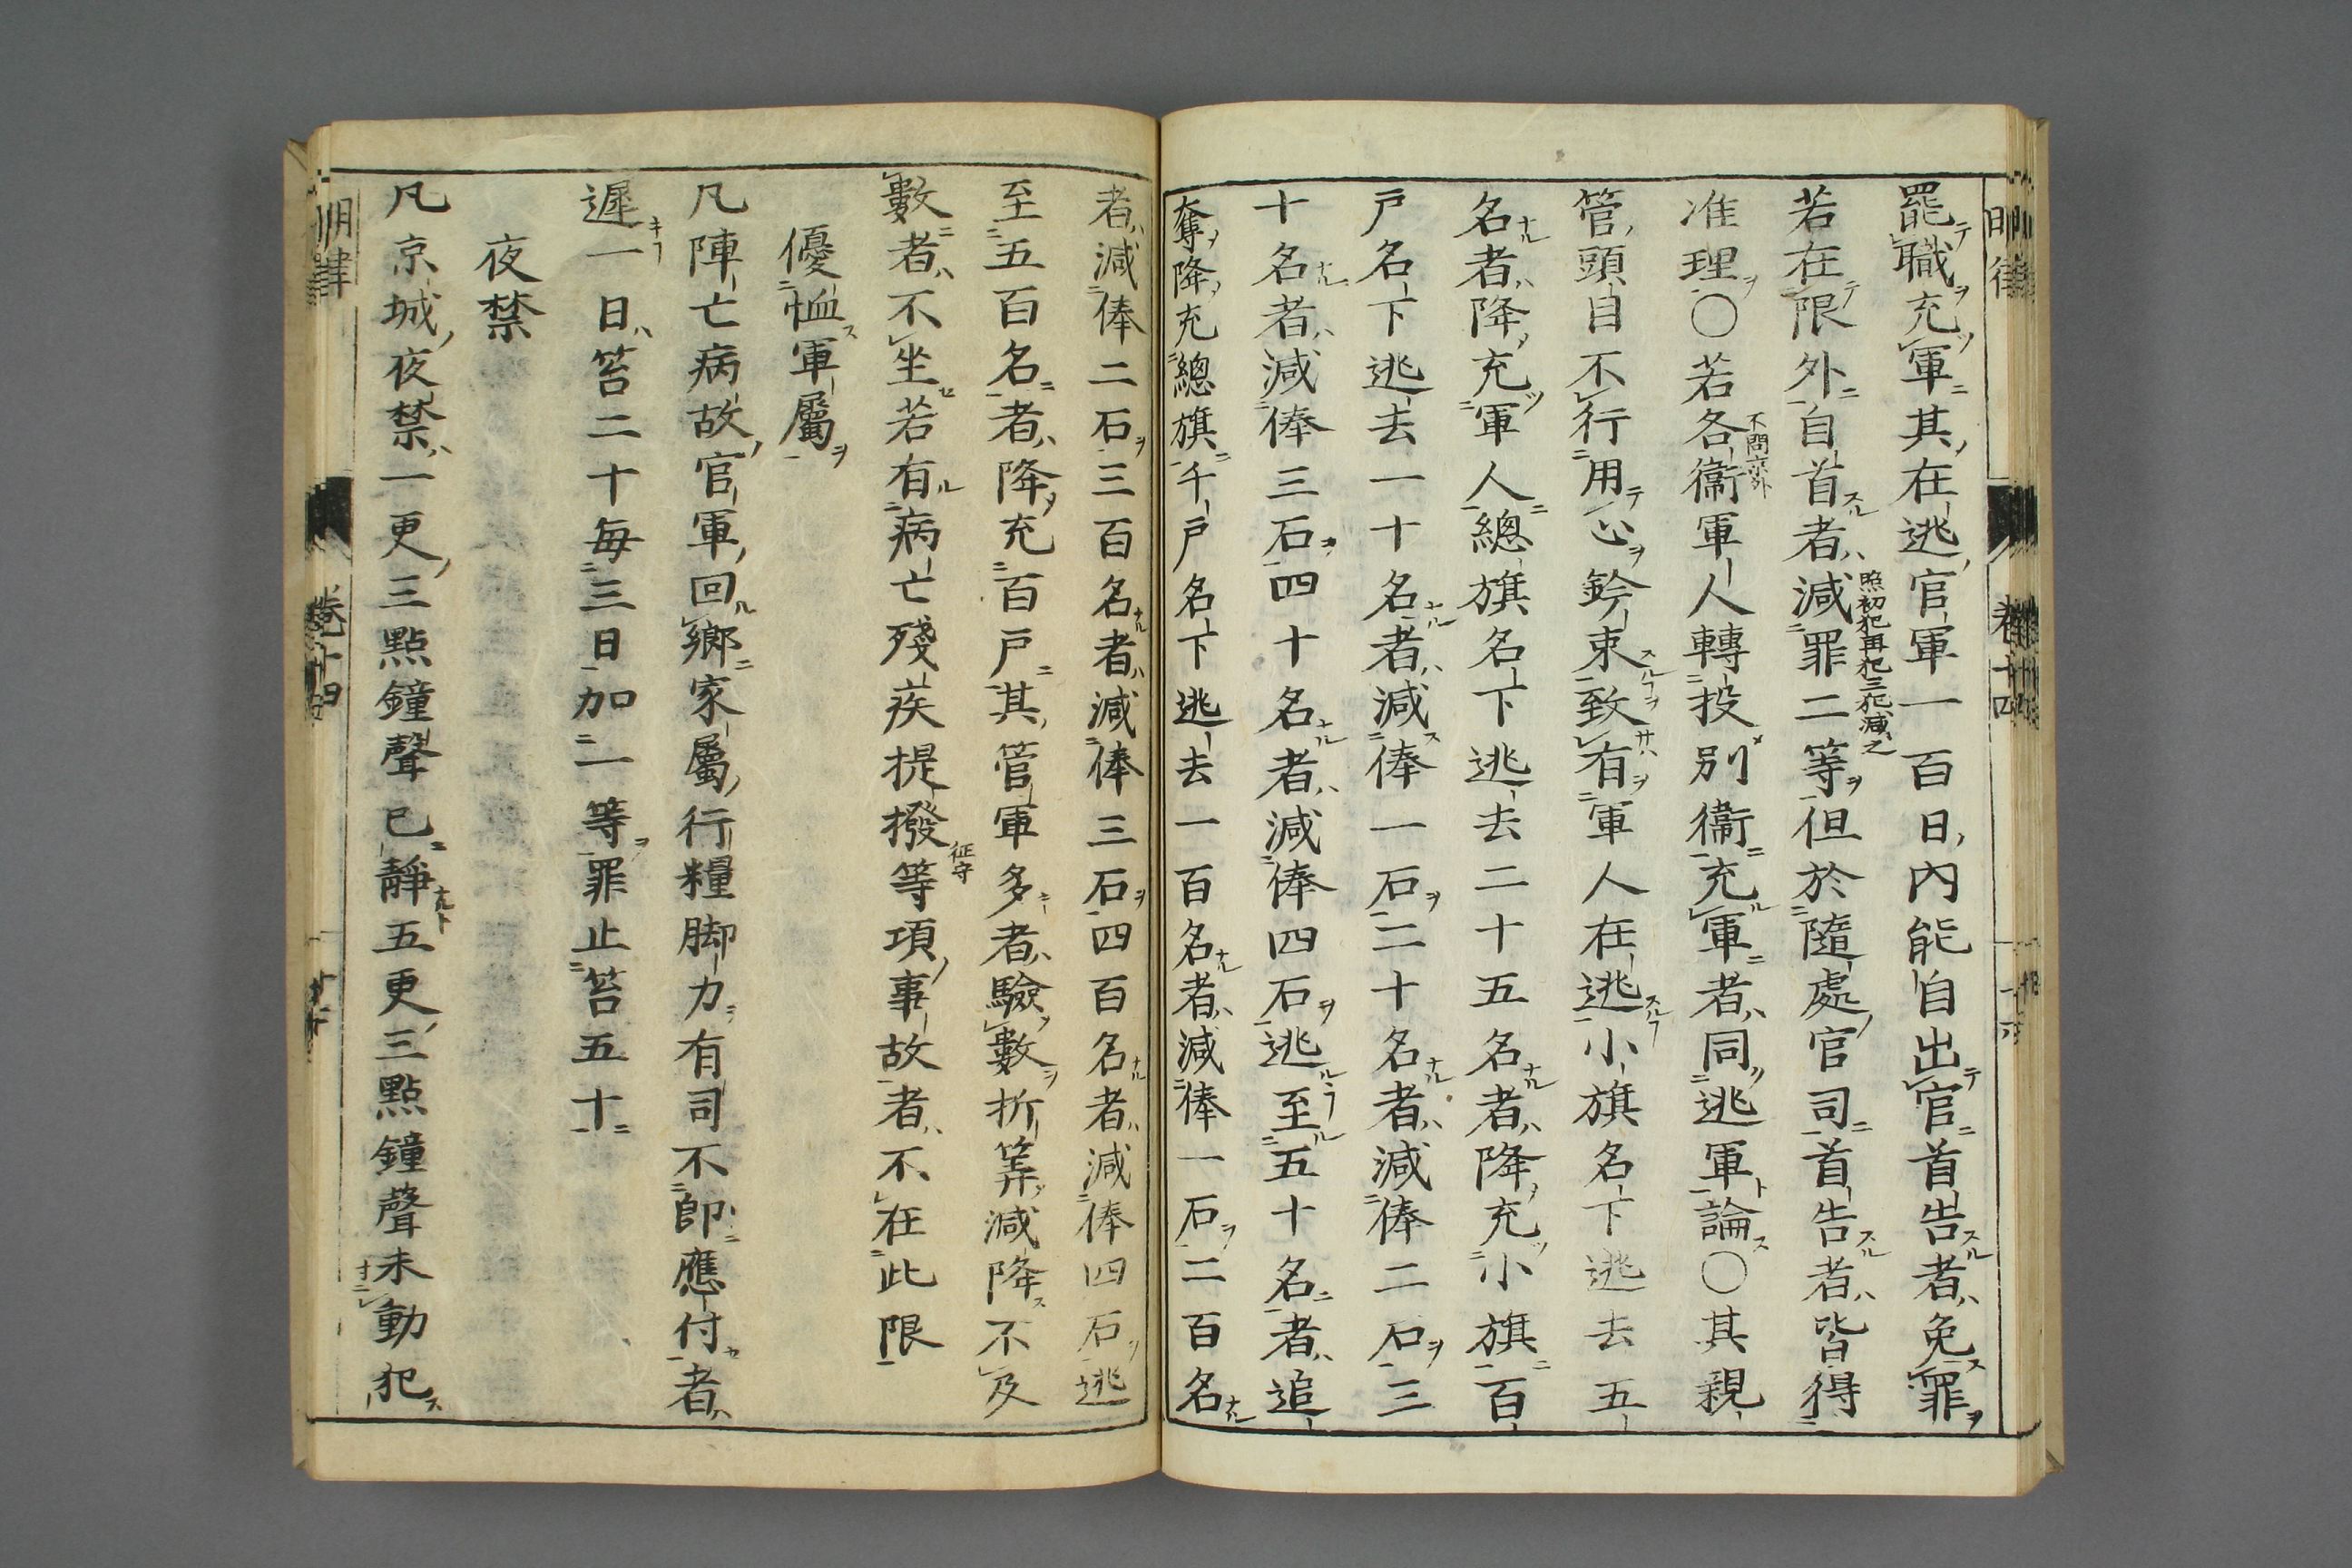 罷職充軍其在逃官軍一百日內能自出官首告者免罪
若在限外自首者減罪二等但於隨處官司首告者皆得
照初犯再犯三犯減之
准理〇若各衞軍人轉投別衞充軍者同逃軍論〇其親
不問京外
管頭目不行用心鈐束致有軍人在逃小旗名下逃去五
名者降充軍人總旗名下逃去二十五名者降充小旗百
戶名下逃去一十名者減俸一石二十名者減俸二石三
十名者減俸三石四十名者減俸四石逃至五十名者追
奪降充總旗千戶名下逃去一百名者減俸一石二百名
者減俸二石三百名者減俸三石四百名者減俸四石逃
至五百名者降充百戶其管軍多者驗數折筭減降不及
數者不坐若有病亡殘疾提撥等項事故者不在此限
征守
優恤軍屬
凡陣亡病故官軍回鄉家屬行糧脚力有司不卽應付者
遲一日笞二十每三日加一等罪止笞五十
夜禁
凡京城夜禁一更三點鐘聲已靜五更三點鐘聲未動犯
明律
卷十四